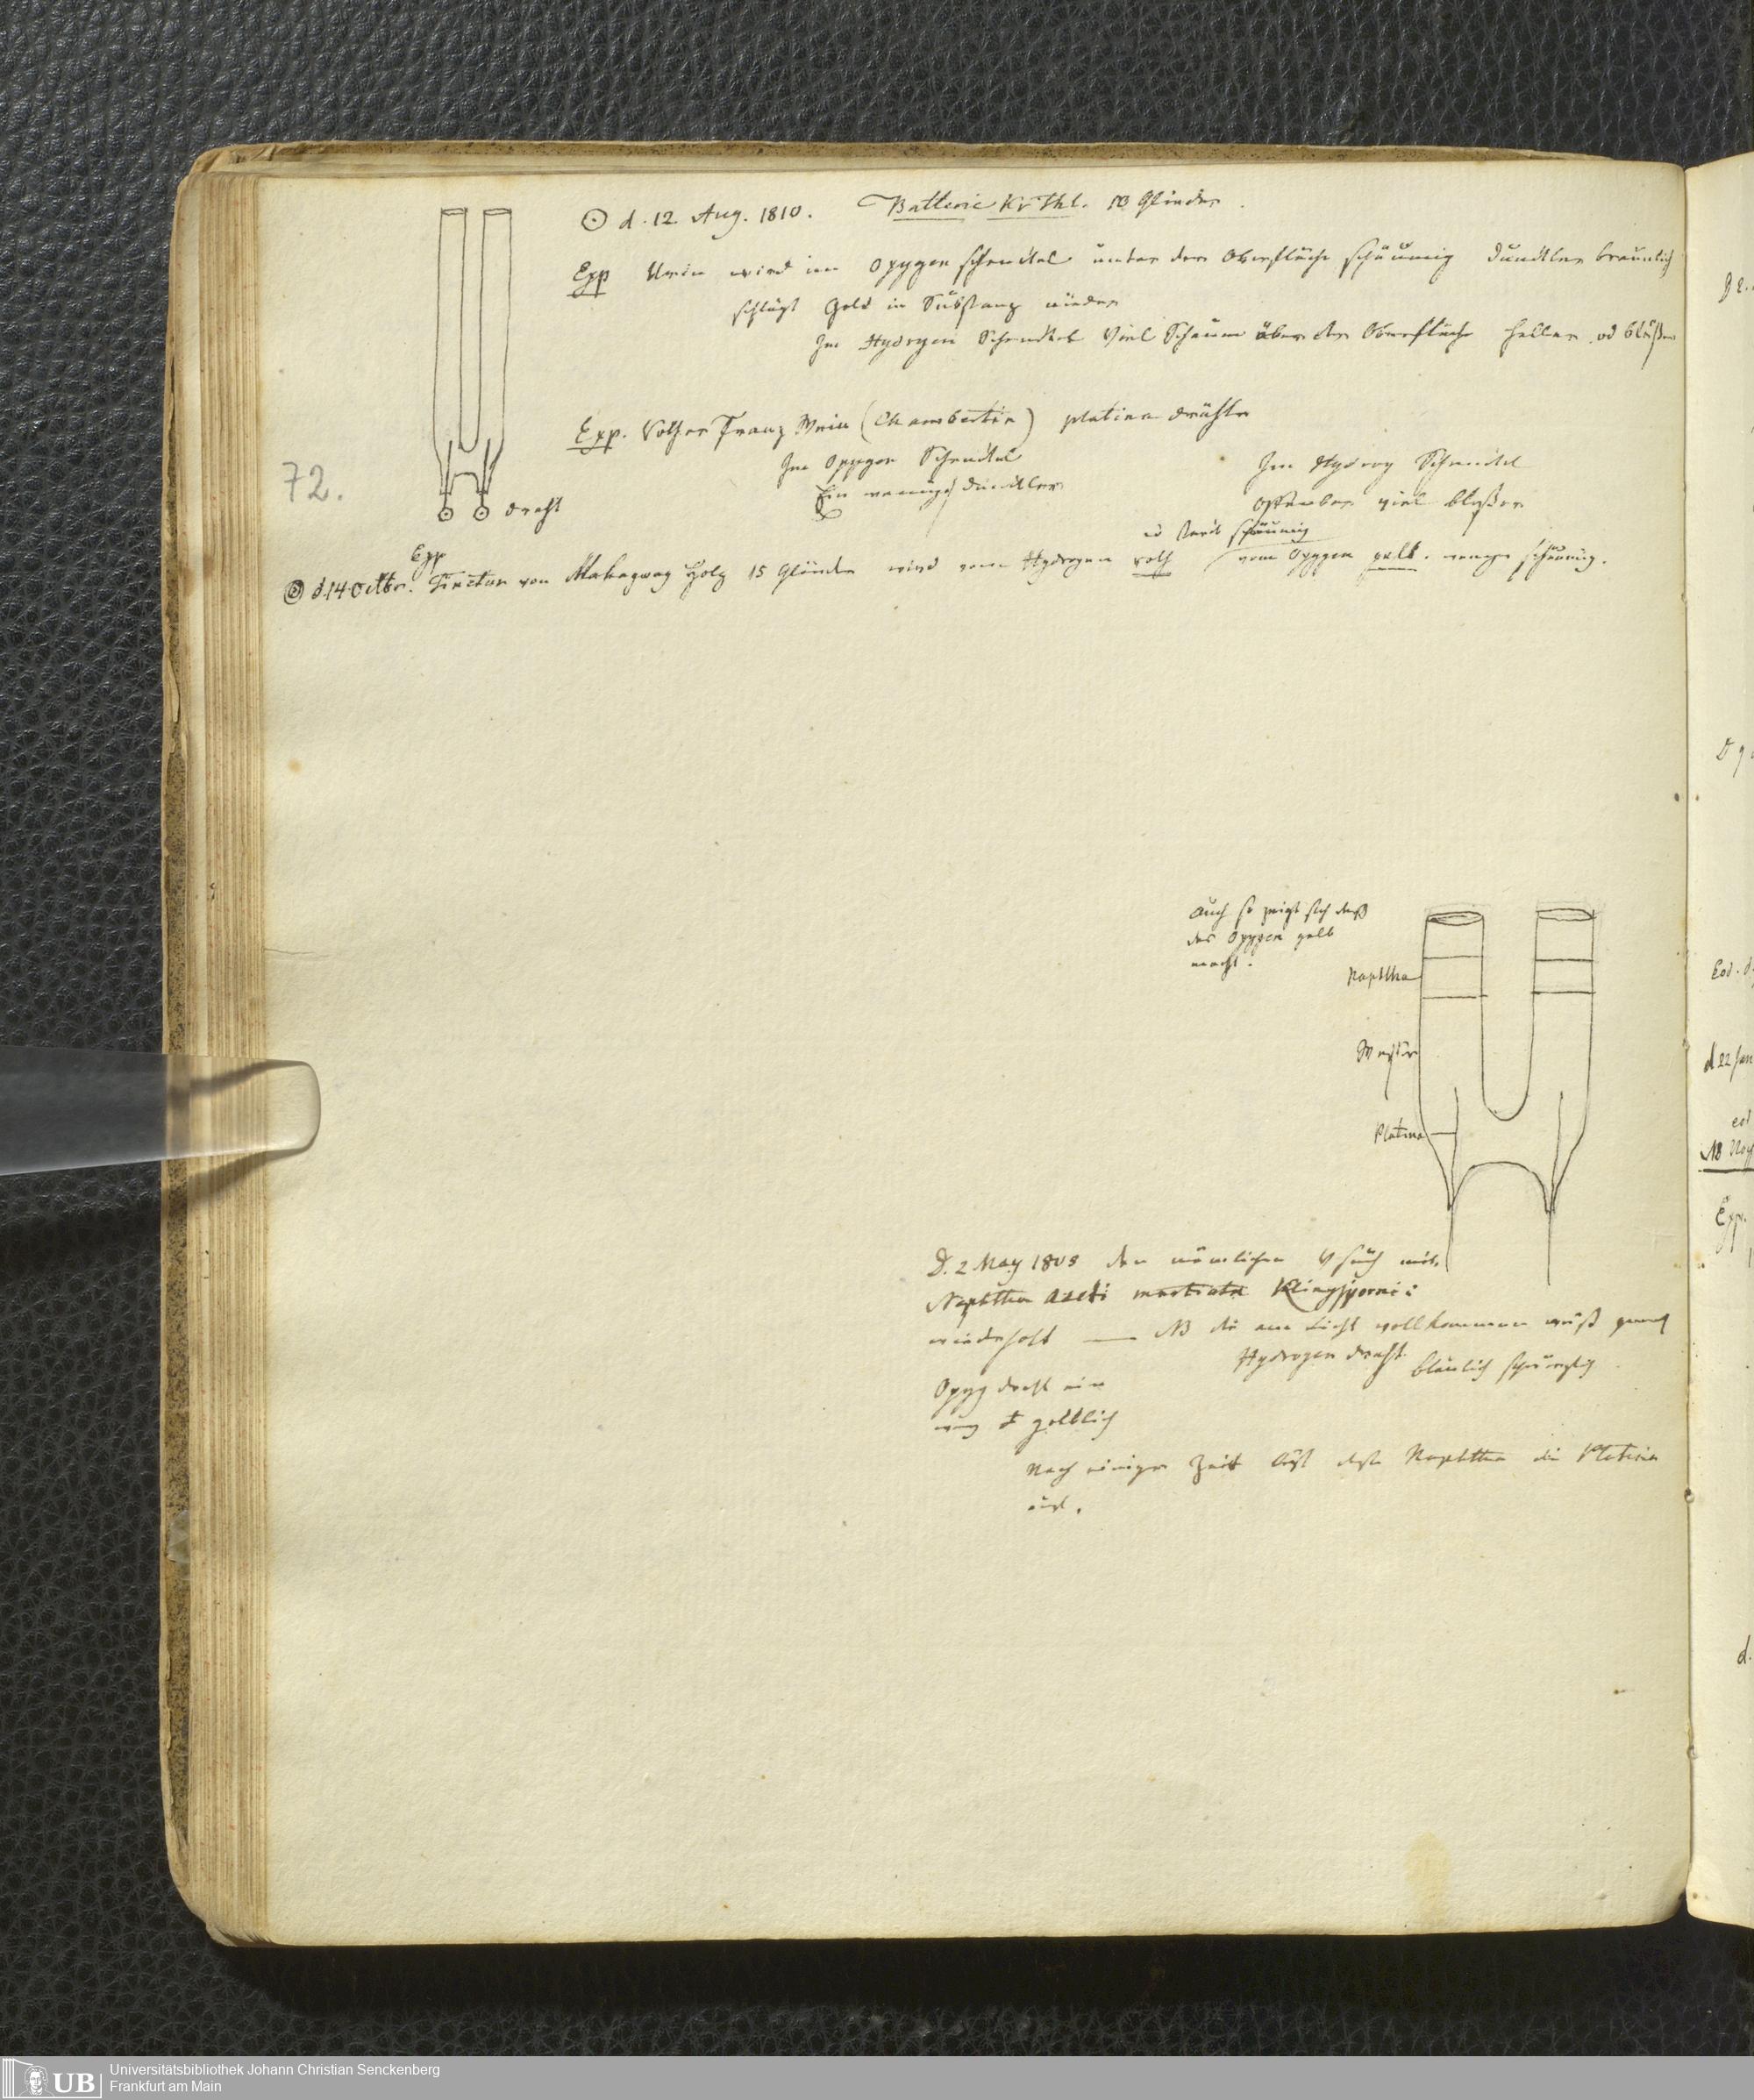 ☉ d. 12 Aug. 1810. Batterie Kr Thl. Glieder.
Exp Urin wird im Oxygen schenckel unter der Oberfläche schäumig dunckler bräunlich
schlägt Gold in Substanz nieder
Im Hydrogen Schenckel Viel Schaum über der Oberfläche heller od bläßer
Exp. Rother Franz Wein (Chambertin) platina dräthe
Im Oxygen Schenckel
Im Hydrog Schenckel
Ein wenig dunckler
offenbar viel blaßer
72.
☉ ☉ draht
u starck schäumig
Exp
d. 14 Octbr. Tinctur von Mahagony Holz 15 Glieder wird vom Hydrogen roth vom Oxygen gelb. weniger schäumig.
Auch so zeigt sich daß
das Oxygen gelb
macht.
Naphtha
Wasser
Platina
D. 2 May 1808 den nämlichen Vsuch mit
Naphtha aceti martiata Klingsporni:
wiederholt — NB die am Licht vollkommen weiß
Hydrogen draht bläulich
Oxyg draht ein
wenig gelblich
Nach einiger Zeit löst diese Naphtha die Platina
auf.
Universitätsbibliothek Johann Christian Senckenberg
Frankfurt am Main
UB